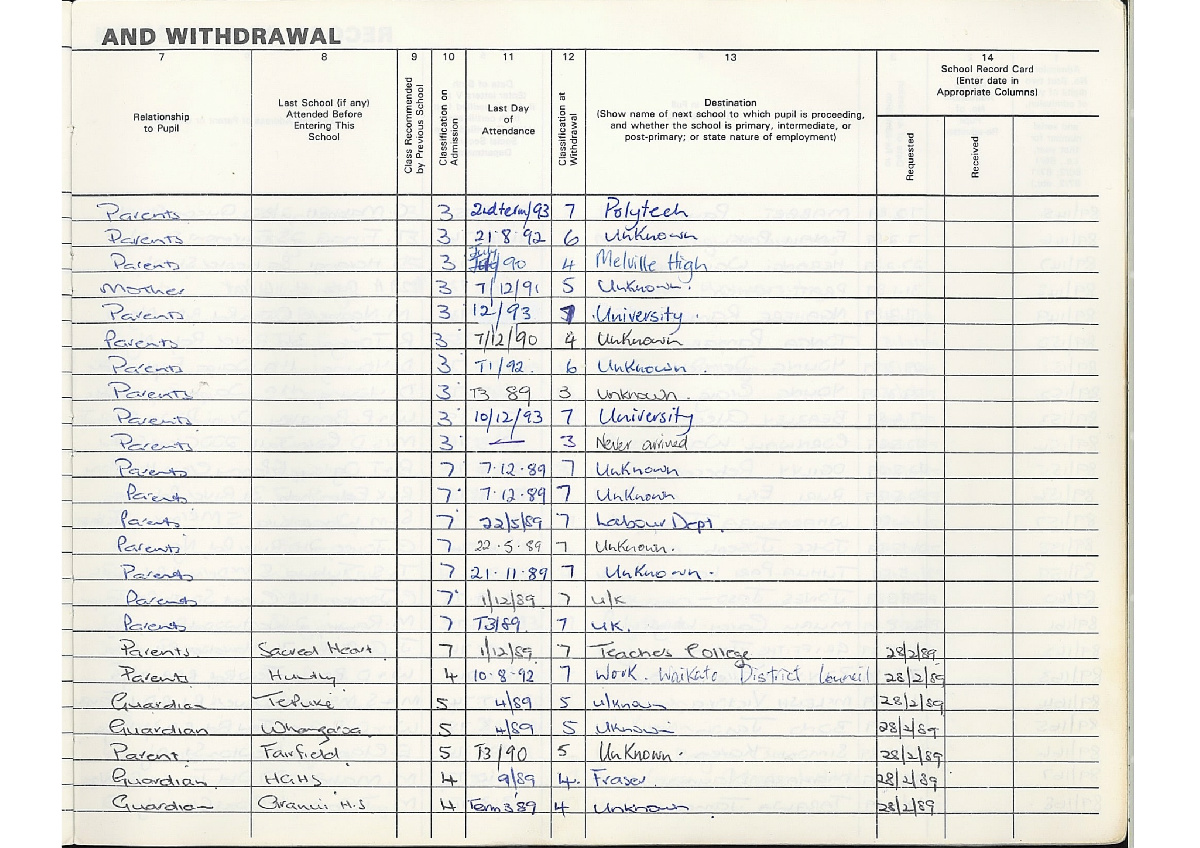 AND WITHDRAWAL
7 8 9 10 11 12 13 14
Relationship to Pupil
Last School (if any) Attended Before Entering This School
Class Recommended by Previous School
Classification on Admission
Last Day of Attendance
Classification at Withdrawal
Destination
(Show name of next school to which pupil is proceeding, and whether the school is primary, intermediate, or post-primary; or state nature of employment)
School Record Card (Enter date in Appropriate Columns)
Requested
Received
Parents 3 2nd term/93 7 Polytech
Parents 3 21·8·92 6 Unknown
Parents 3 July/90 4 Melville High
Mother 3 7/12/91 5 Unknown.
Parents 3 12/93 7 University.
Parents 3 7/12/90 4 Unknown
Parents 3 T1/92. 6 Unknown.
Parents 3 T3 89 3 Unknown.
Parents 3 10/12/93 7 University
Parents 3 — 3 Never arrived
Parents 7 7·12·89 7 Unknown
Parents 7 7·12·89 7 Unknown
Parents 7 22/5/89 7 Labour Dept.
Parents 7 22·5·89 7 Unknown.
Parents 7 21·11·89 7 Unknown.
Parents 7 1/12/89 7 u/k
Parents 7 T3/89. 7 UK.
Parents Sacred Heart 7 1/12/89 7 Teachers College 28/2/89
Parents Huntly 4 10·8·92 7 Work. Waikato District Council 28/2/89
Guardian Te Puke 5 4/89 5 u/known 28/2/89
Guardian Whangaroa 5 4/89 5 Uknown 28/2/89
Parent Fairfield 5 T3/90 5 Unknown. 28/2/89
Guardian HGHS 4 9/89 4. Fraser 28/2/89
Guardian H.S 4 Term 3 89 4 Unknown 28/2/89